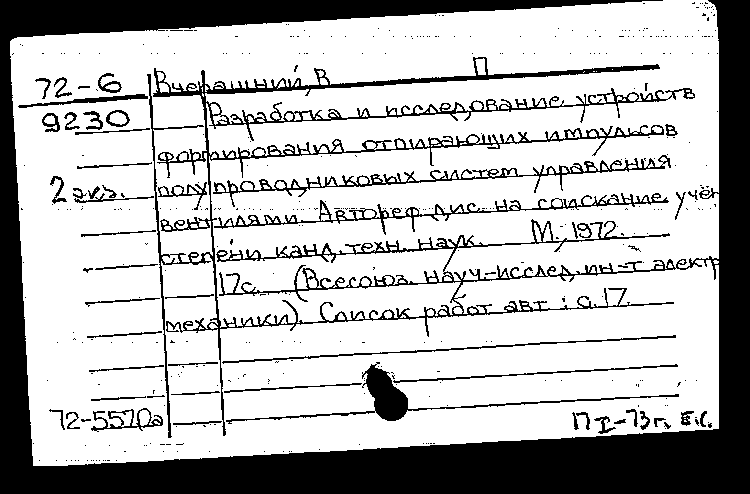 72-6 Вчерашний, В П
9230 Разработка и исследование устройств
формирования отпирающих импульсов
2 экз. полупроводниковых систем управления
вентилями. Автореф. дис. на соискание учён
степени канд. техн. наук. М., 1972.
17с. (Всесоюз. науч.-исслед. ин-т электр
механики). Список работ авт: с.17.
72-5570а
17 I-73г. Е.С.